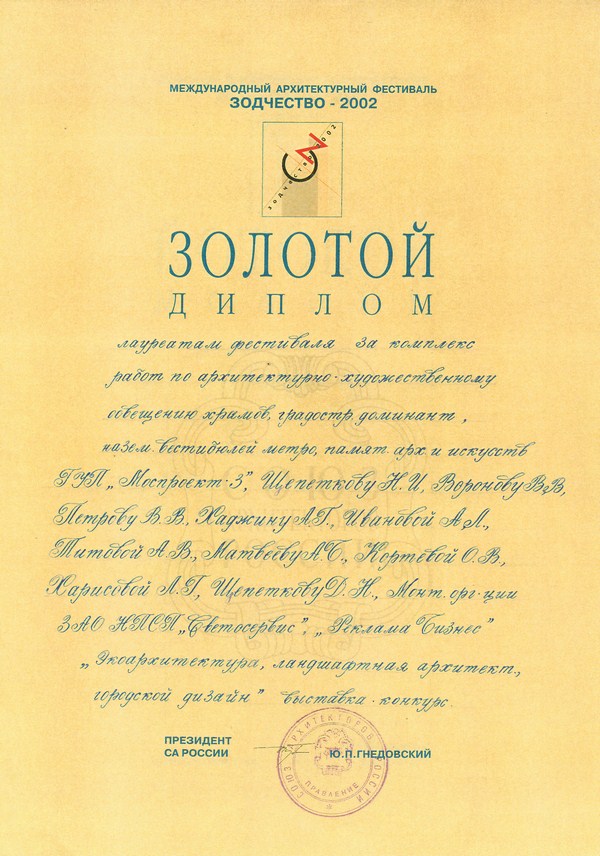 МЕЖДУНАРОДНЫЙ АРХИТЕКТУРНЫЙ ФЕСТИВАЛЬ
ЗОДЧЕСТВО - 2002
ЗОДЧЕСТВО 2002
ЗОЛОТОЙ
ДИПЛОМ
лауреатам фестиваля за комплекс
работ по архитектурно-художественному
освещению храмов, градостр. доминант,
назем. вестибюлей метро, памят. арх. и искусств
ГУП „Моспроект-3”, Щепеткову Н. И., Воронову В. В.,
Петрову В. В., Хаджину А. Г., Ивановой А. Л.,
Титовой А. В., Матвееву А. Б., Кортевой О. В.,
Харисовой Л. Г., Щепеткову Д. Н., Монт. орг-ции
ЗАО НПСП „Светосервис”, „Реклама Бизнес”
„Экоархитектура, ландшафтная архитект.,
городской дизайн” выставка-конкурс.
ПРЕЗИДЕНТ
СА РОССИИ Ю.П.ГНЕДОВСКИЙ
СОЮЗ АРХИТЕКТОРОВ РОССИИ
ПРАВЛЕНИЕ